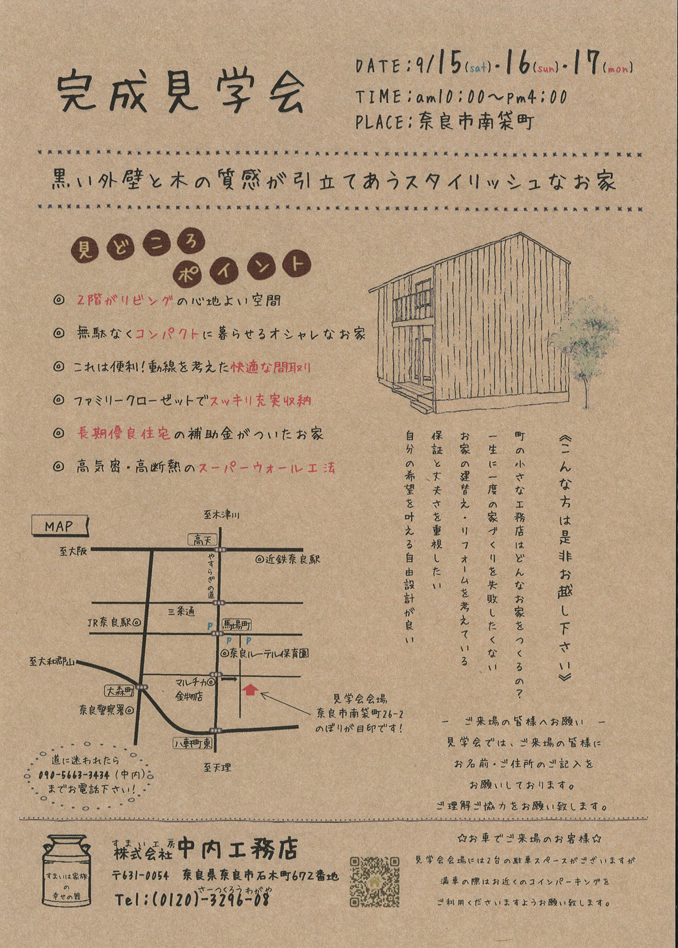 完成見学会
DATE;9/15(sat)・16(sun)・17(mon)
TIME;am10:00〜pm4:00
PLACE;奈良市南袋町
黒い外壁と木の質感が引立てあうスタイリッシュなお家
見どころ
ポイント
◎ 2階がリビングの心地よい空間
◎ 無駄なくコンパクトに暮らせるオシャレなお家
◎ これは便利!動線を考えた快適な間取り
◎ ファミリークローゼットでスッキリ充実収納
◎ 長期優良住宅の補助金がついたお家
◎ 高気密・高断熱のスーパーウォール工法
《こんな方は是非お越し下さい》
町の小さな工務店はどんなお家をつくるの?
一生に一度の家づくりを失敗したくない
お家の建替え・リフォームを考えている
保証と丈夫さを重視したい
自分の希望を叶える自由設計が良い
MAP
至木津川
至大阪
高天
近鉄奈良駅
やすらぎの道
三条通
JR奈良駅
P
馬場町
P P
奈良ルーテル保育園
至大和郡山
マルチカ
金物店
大森町
奈良警察署
八軒町東
至天理
見学会会場
奈良市南袋町26-2
のぼりが目印です!
道に迷われたら
090-5663-3434 (中内)
までお電話下さい!
― ご来場の皆様へお願い ―
見学会では、ご来場の皆様に
お名前・ご住所のご記入を
お願いしております。
ご理解ご協力をお願い致します。
すまいは家族
の
幸せの器
すまい工房
株式会社 中内工務店
〒631-0054 奈良県奈良市石木町672番地
さーつくろうわがや
Tel;(0120)-3296-08
☆お車でご来場のお客様☆
見学会会場には2台の駐車スペースがございますが
満車の際はお近くのコインパーキングを
ご利用くださいますようお願い致します。